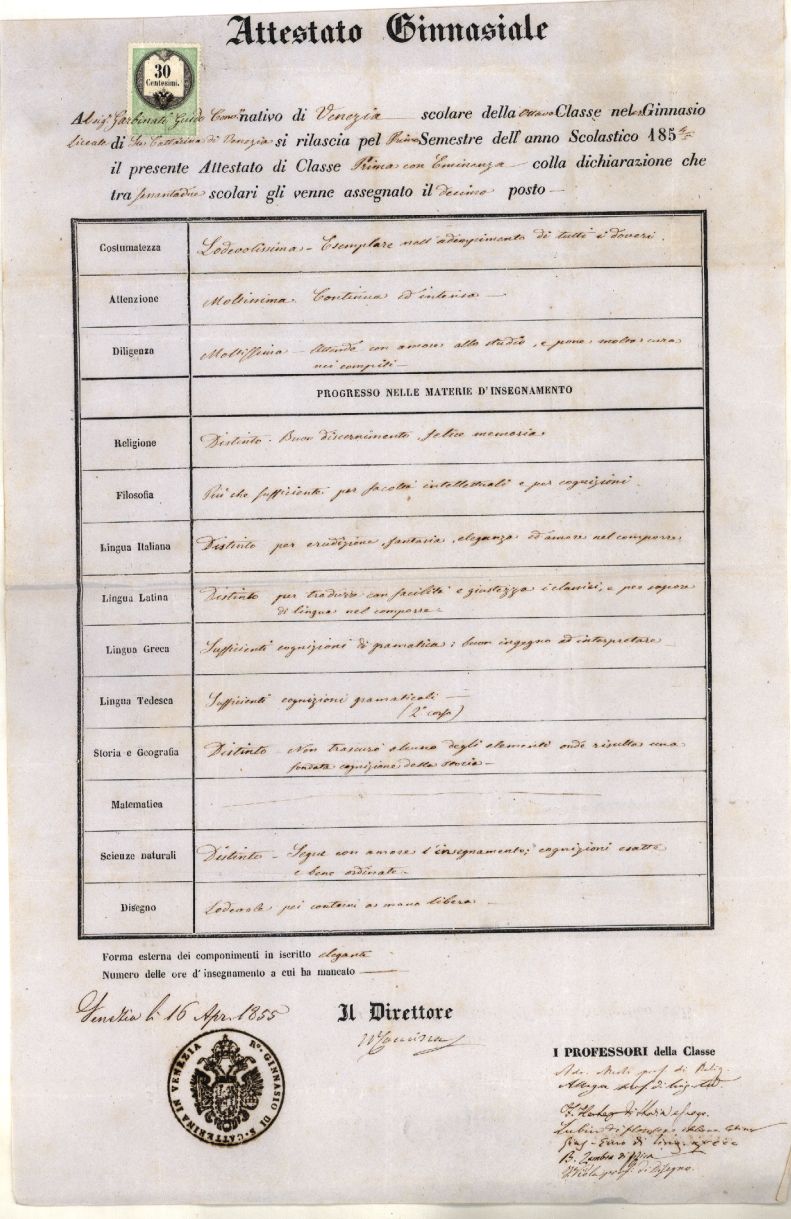 Attestato Ginnasiale
30
Centesimi.
Al sig. Garbinati Guido nativo di Venezia scolare della Ottava Classe nel Ginnasio
Liceale di Sta Catterina di Venezia si rilascia pel Primo Semestre dell' anno Scolastico 185
il presente Attestato di Classe Prima con Eminenza colla dichiarazione che
tra scolari gli venne assegnato il decimo posto —
Costumatezza
Lodevolissima – Esemplare nell'adempimento di tutti i doveri.
Attenzione
Moltissima. Continua ed intensa —
Diligenza
Moltissima – Attende con amore allo studio, e pone molta cura
nei compiti –
PROGRESSO NELLE MATERIE D'INSEGNAMENTO
Religione
Distinto. Buon discernimento, felice memoria
Filosofia
Più che sufficiente per facoltà intellettuali e per cognizioni
Lingua Italiana
Distinto per erudizione, fantasia, eleganza ed amore nel comporre
Lingua Latina
Distinto per tradurre con facilità e giustezza i classici, e per sapore
di lingua nel comporre
Lingua Greca
Sufficienti cognizioni di gramatica; buon ingegno ad interpretare
Lingua Tedesca
Sufficienti cognizioni gramaticali —
(2° corso)
Storia e Geografia
Distinto – Non trascura alcuno degli elementi onde risulta una
fondata cognizione della storia –
Matematica
Scienze naturali
Distinto – Segue con amore l'insegnamento; cognizioni esatte
e bene ordinate –
Disegno
Lodevole pei contorni a mano libera
Forma esterna dei componimenti in iscritto elegante
Numero delle ore d' insegnamento a cui ha mancato —
Venezia li 16 Apr. 1855
Il Direttore
R.° GINNASIO DI S. CATTERINA IN VENEZIA
I PROFESSORI della Classe
prof. di Relig.
B. Zambra di fisica
prof. di disegno